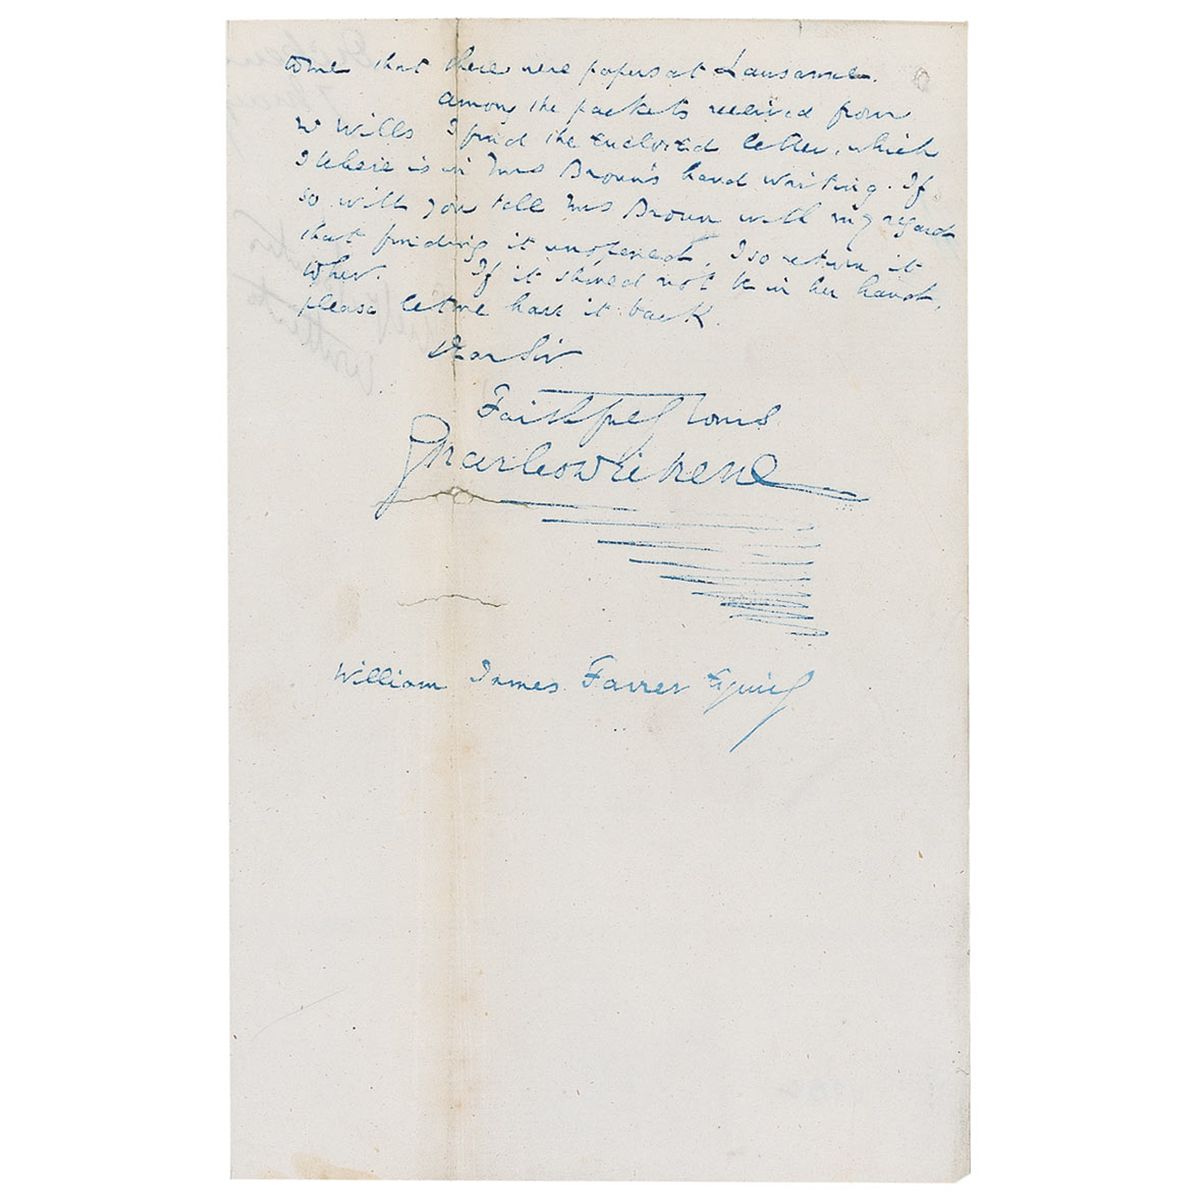 to me that there were papers at Lausanne.
Among the packets received from
Mr Wills I find the enclosed letter, which
I believe is in Mrs Brown's hand writing. If
so will you tell Mrs Brown with my regard
that finding it unopened, I so return it
to her. If it should not be in her hand,
please let me have it back.
Dear Sir
Faithfully Yours
Charles Dickens
William James Farrer Esquire